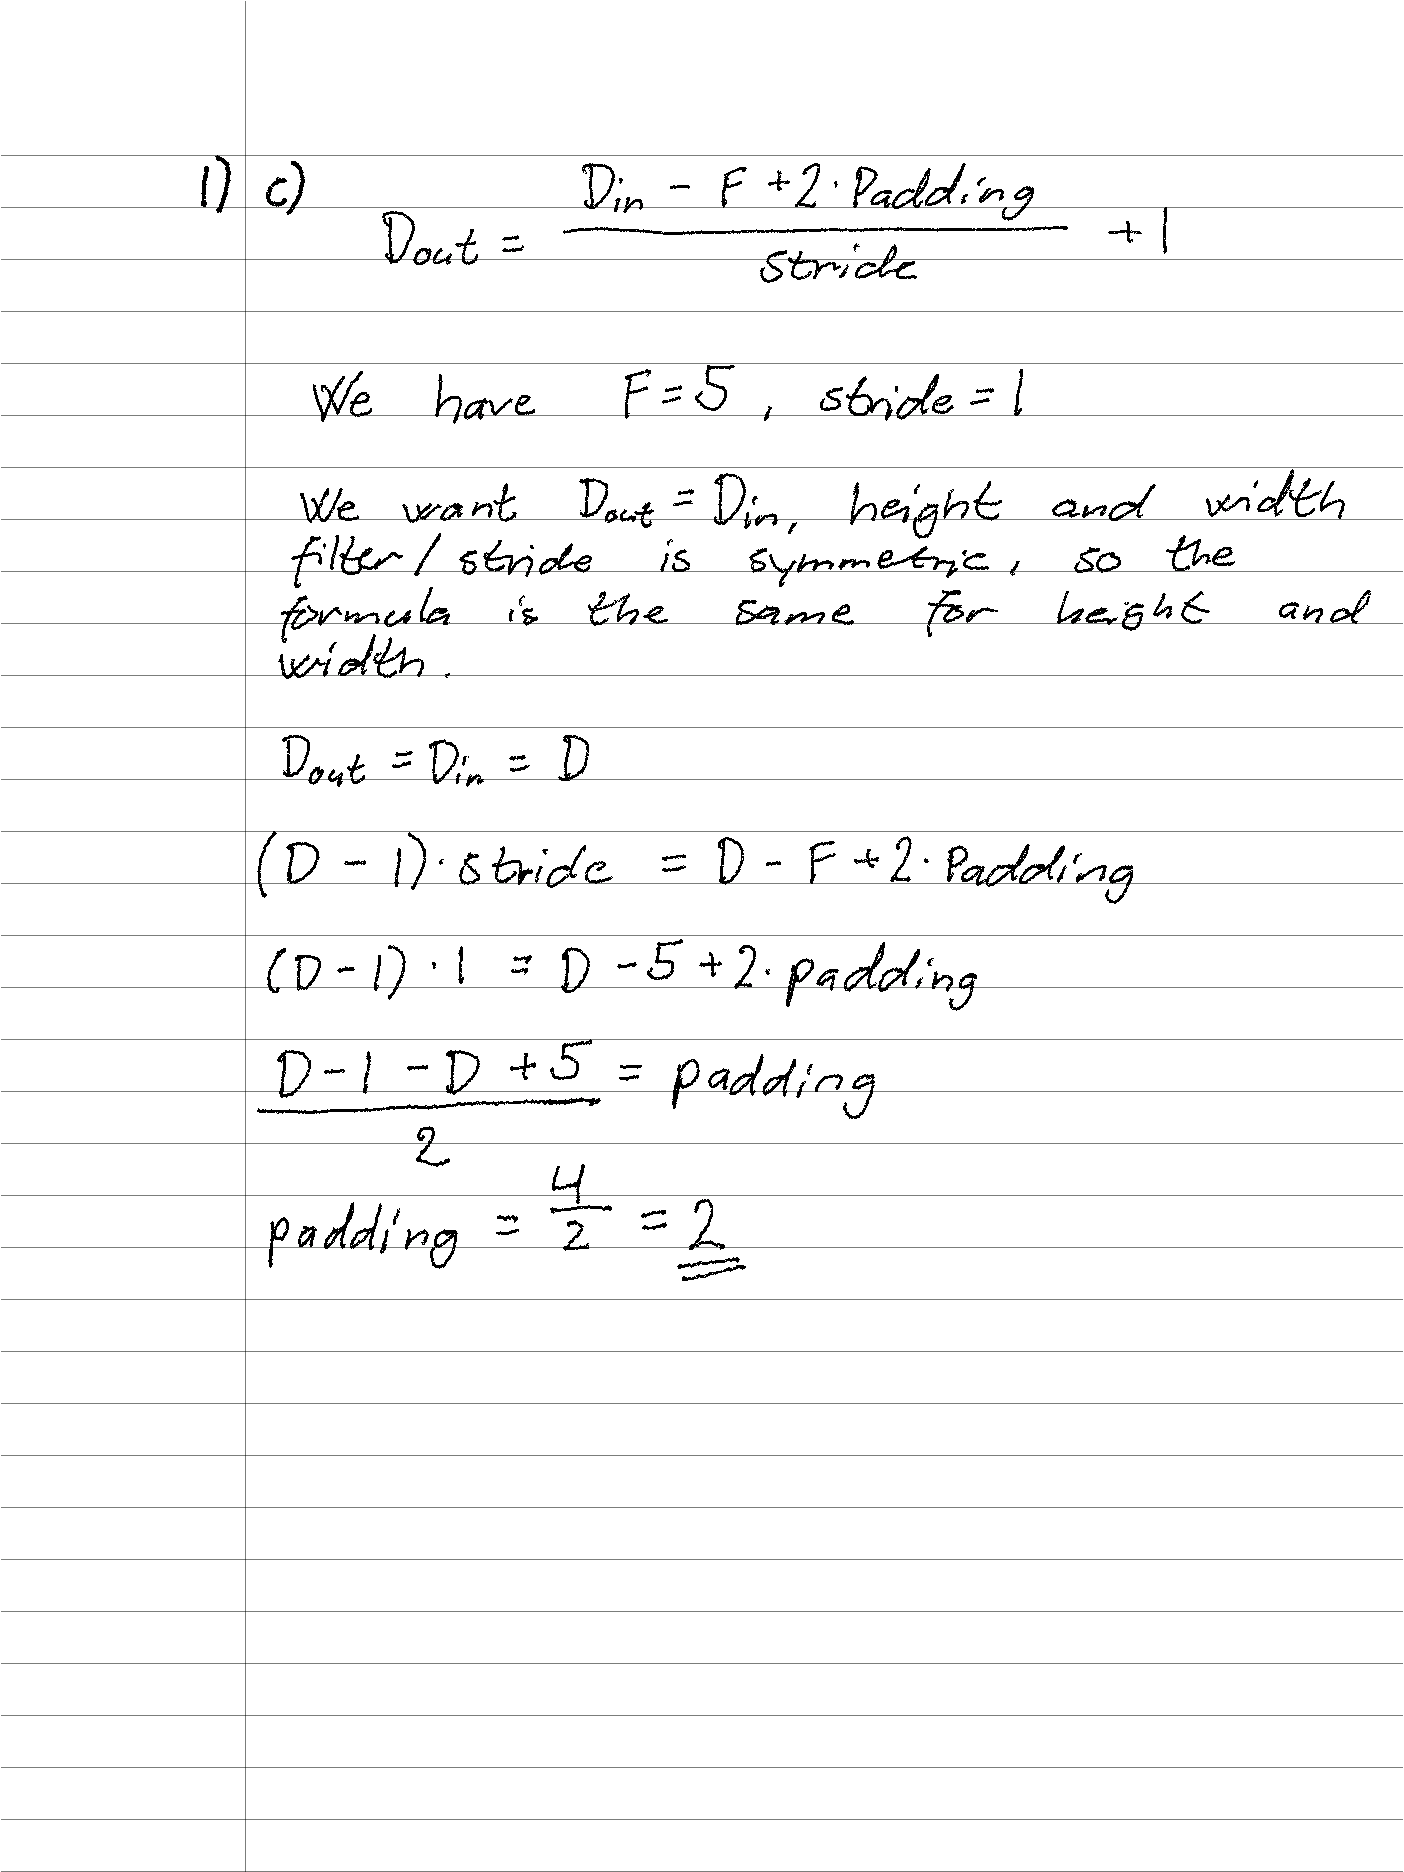 1) c)
Dout = (Din - F + 2 · Padding) / stride + 1
We have F = 5 , stride = 1
We want Dout = Din, height and width
filter / stride is symmetric, so the
formula is the same for height and
width.
Dout = Din = D
(D - 1) · stride = D - F + 2 · Padding
(D - 1) · 1 = D - 5 + 2 · padding
(D - 1 - D + 5) / 2 = padding
padding = 4/2 = 2